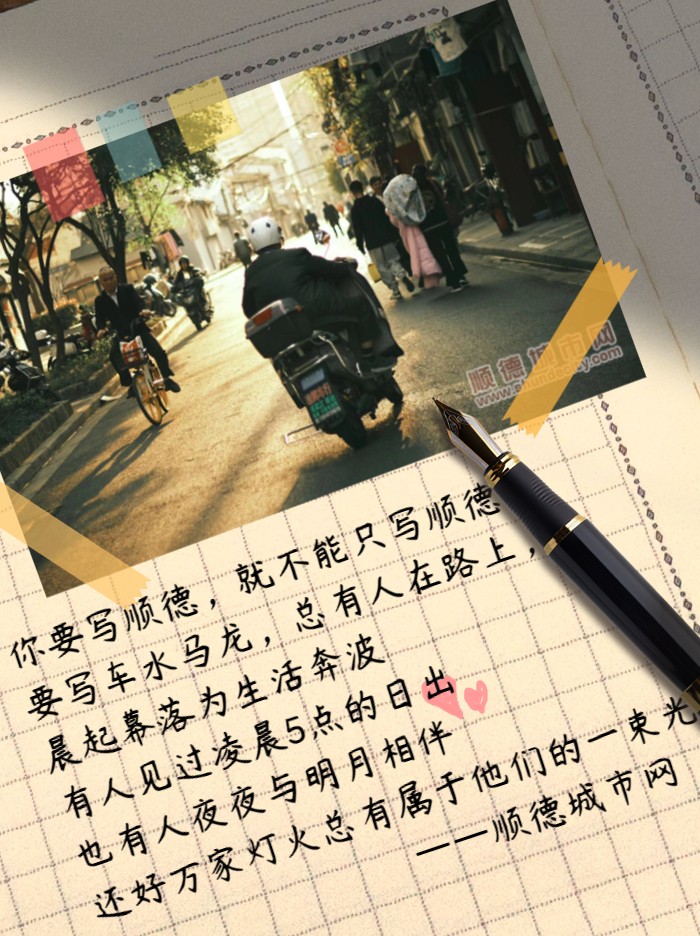 顺德城市网
www.shundecity.com
你要写顺德，就不能只写顺德
要写车水马龙，总有人在路上，
晨起幕落为生活奔波
有人见过凌晨5点的日出
也有人夜夜与明月相伴
还好万家灯火总有属于他们的一束光
——顺德城市网